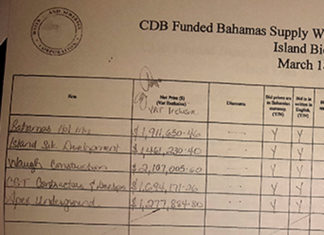 WATER AND SEWERAGE
CORPORATION
CDB Funded Bahamas Supply W
Island Bi
March 1
Firm
Net Price ($)
(Vat Exclusive)
VAT Inclusive
Discounts
Bid prices are in Bahamian currency (Y/N)
Bid is in written in English (Y/N)
Bahamas Hot Mix $1,911,650.46 Y Y
Island Site Development $1,461,230.40 Y Y
Waugh Construction $2,107,005.60 Y Y
CBT Contractors & Develops $1,694,171.26 Y Y
Apex Underground $1,277,884.80 Y Y